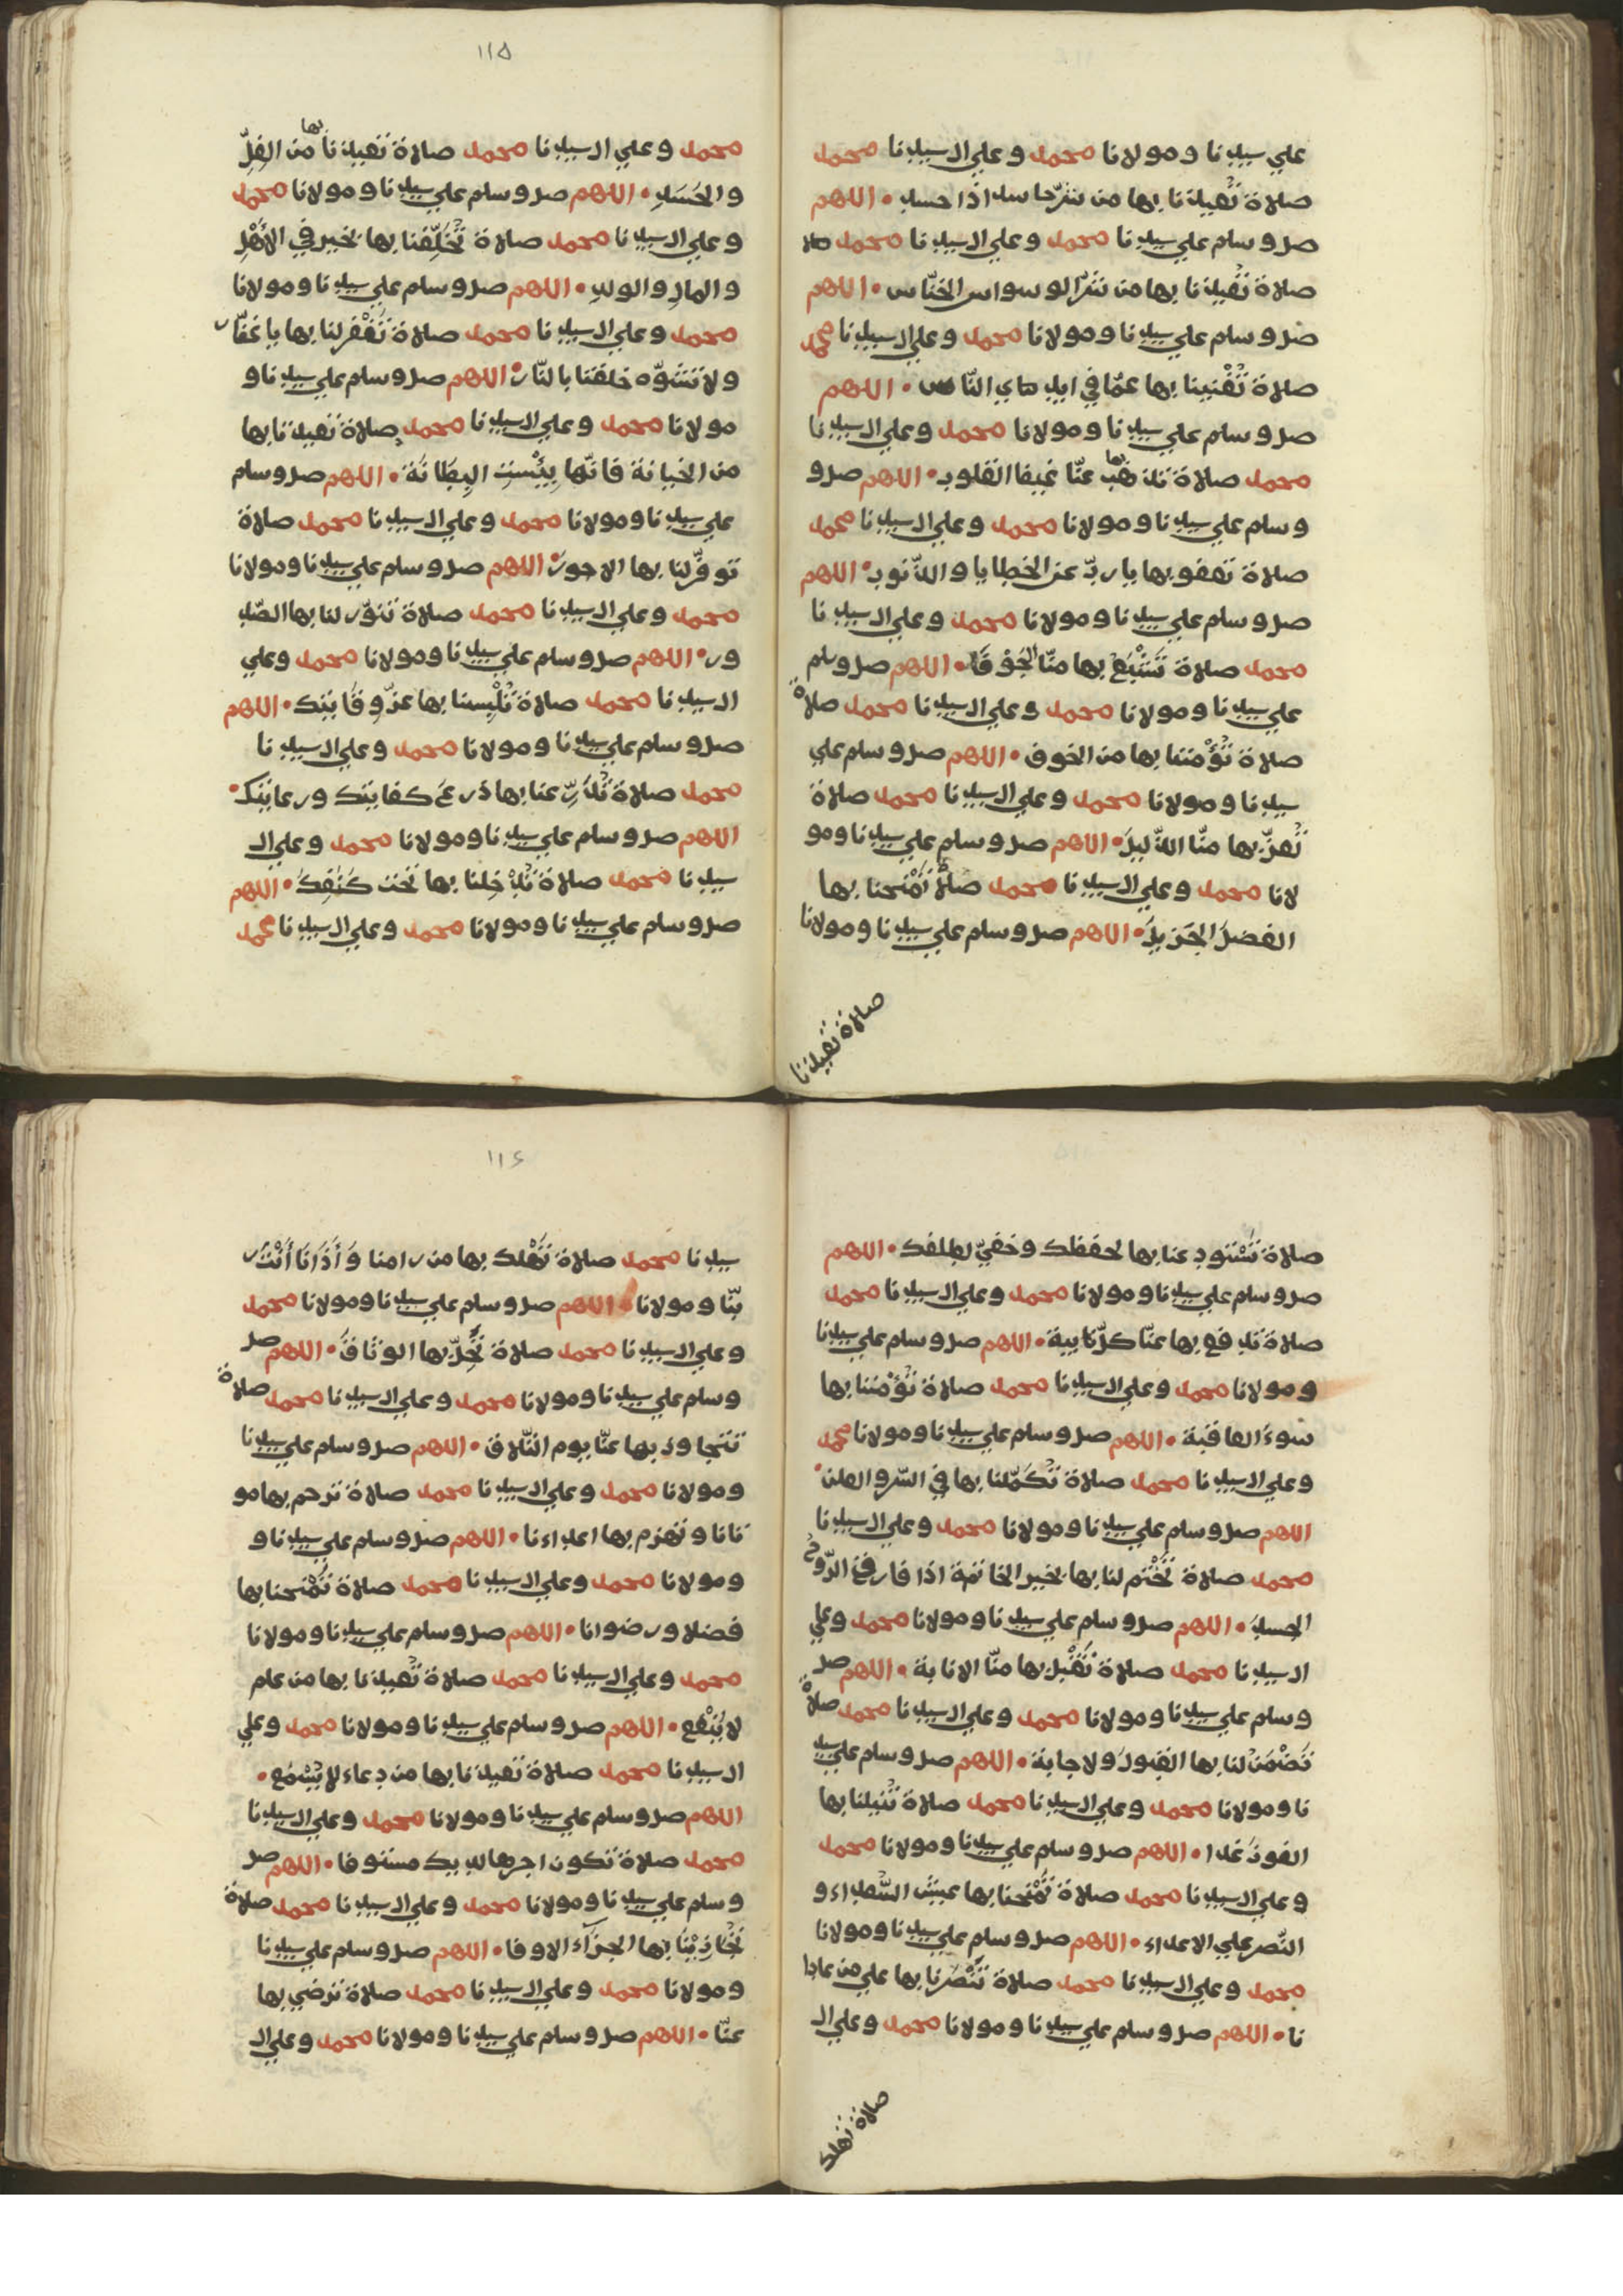 علي سيدنا ومولانا محمد وعلي ال سيدنا محمد
صلاة تُعيذنا بها من شرّ حاسد اذا حسد • اللهم
صل وسلم علي سيدنا محمد وعلي ال سيدنا محمد صلا
صلاة تُعيذنا بها من شرّ الوسواس الخنّاس • اللهم
صل وسلم علي سيدنا ومولانا محمد وعلي ال سيدنا محمد
صلاة تُغْنينا بها عمّا في ايدي النّاس • اللهم
صل وسلم علي سيدنا ومولانا محمد وعلي ال سيدنا
محمد صلاة تذهب بها عنّا غيض القلوب • اللهم صل و
وسلم علي سيدنا ومولانا محمد وعلي ال سيدنا محمد
صلاة تعفو بها يا ربّ عن الخطايا والذّنوب • اللهم
صل وسلم علي سيدنا ومولانا محمد وعلي ال سيدنا
محمد صلاة تَشْبَعُ بها منّا الجُوْفَا • اللهم صل وسلم
علي سيدنا ومولانا محمد وعلي ال سيدنا محمد صلاة
صلاة تُؤْمننا بها من الخوف • اللهم صل وسلم علي
سيدنا ومولانا محمد وعلي ال سيدنا محمد صلاة
تُعزّ بها منّا الذّليلَ • اللهم صل وسلم علي سيدنا ومو
لانا محمد وعلي ال سيدنا محمد صلاة تَمْنحنا بها
الفضلَ الجَزيلَ • اللهم صل وسلم علي سيدنا ومولانا
صلاة تعيذنا
١١٥
محمد وعلي ال سيدنا محمد صلاة تعيذنا بها من الغِلّ
والحَسَدِ • اللهم صل وسلم علي سيدنا ومولانا محمد
وعلي ال سيدنا محمد صلاة تُخَلِّفنا بها بخير في الأَهْلِ
والمالِ والولدِ • اللهم صل وسلم علي سيدنا ومولانا
محمد وعلي ال سيدنا محمد صلاة تَغْفر لنا بها يا غفّار
ولا تشوّه خلقنا بالنّار • اللهم صل وسلم علي سيدنا و
مولانا محمد وعلي ال سيدنا محمد صلاة تعيذنا بها
من الخيانة فانّها بِئْستِ البِطَانَة • اللهم صل وسلم
علي سيدنا ومولانا محمد وعلي ال سيدنا محمد صلاة
توفّر لنا بها الاجورَ • اللهم صل وسلم علي سيدنا ومولانا
محمد وعلي ال سيدنا محمد صلاة تنوّر لنا بها الصّد
ور • اللهم صل وسلم علي سيدنا ومولانا محمد وعلي
ال سيدنا محمد صلاة تُلْبِسنا بها عزّ وِقَايتك • اللهم
صل وسلم علي سيدنا ومولانا محمد وعلي ال سيدنا
محمد صلاة تُدَرِّعنا بها دَرعَ كفايتك ورعايتك •
اللهم صل وسلم علي سيدنا ومولانا محمد وعلي ال
سيدنا محمد صلاة تُدْخلنا بها تَحْت كَنَفِكَ • اللهم
صل وسلم علي سيدنا ومولانا محمد وعلي ال سيدنا محمد
صلاة تَسْتودعنا بها لحفظك وخفيّ لطفك • اللهم
صل وسلم علي سيدنا ومولانا محمد وعلي ال سيدنا محمد
صلاة تدفع بها عنّا كلّ نايبة • اللهم صل وسلم علي سيدنا
ومولانا محمد وعلي ال سيدنا محمد صلاة تُؤْمننا بها
سوءَ العاقبة • اللهم صل وسلم علي سيدنا ومولانا محمد
وعلي ال سيدنا محمد صلاة تُكَمّلنا بها في السّر والعلن •
اللهم صل وسلم علي سيدنا ومولانا محمد وعلي ال سيدنا
محمد صلاة تَخْتم لنا بها بخير الخاتمة اذا فارق الرّوح
الجسدَ • اللهم صل وسلم علي سيدنا ومولانا محمد وعلي
ال سيدنا محمد صلاة تَقْبل بها منّا الانابة • اللهم صل
وسلم علي سيدنا ومولانا محمد وعلي ال سيدنا محمد صلاة
تَضْمَنُ لنا بها القبولَ ولاجابة • اللهم صل وسلم علي سيد
نا ومولانا محمد وعلي ال سيدنا محمد صلاة تُنيلنا بها
الفوز غدا • اللهم صل وسلم علي سيدنا ومولانا محمد
وعلي ال سيدنا محمد صلاة تَمْنحنا بها عيش السُّعداء و
النّصر علي الاعداء • اللهم صل وسلم علي سيدنا ومولانا
محمد وعلي ال سيدنا محمد صلاة تَنْصُرنا بها علي من عادا
نا • اللهم صل وسلم علي سيدنا ومولانا محمد وعلي ال
صلاة تهلك
١١٦
سيدنا محمد صلاة تَهْلك بها من رامنا وَأَذَانَا أَنْتَ ر
بّنا ومولانا • اللهم صل وسلم علي سيدنا ومولانا محمد
وعلي ال سيدنا محمد صلاة تَحِلّ بها الوثَاقَ • اللهم صل
وسلم علي سيدنا ومولانا محمد وعلي ال سيدنا محمد صلاة
تتجاوز بها عنّا يوم التّلاق • اللهم صل وسلم علي سيدنا
ومولانا محمد وعلي ال سيدنا محمد صلاة ترحم بها مو
تانا وتهزم بها اعداءنا • اللهم صل وسلم علي سيدنا و
ومولانا محمد وعلي ال سيدنا محمد صلاة تَمْنحنا بها
فضلا ورضوانا • اللهم صل وسلم علي سيدنا ومولانا
محمد وعلي ال سيدنا محمد صلاة تُعيذنا بها من علم
لا يَنْفع • اللهم صل وسلم علي سيدنا ومولانا محمد وعلي
ال سيدنا محمد صلاة تعيذنا بها من دعاء لا يُسْمَع •
اللهم صل وسلم علي سيدنا ومولانا محمد وعلي ال سيدنا
محمد صلاة تكون اجرها لديك مستوفا • اللهم صل
وسلم علي سيدنا ومولانا محمد وعلي ال سيدنا محمد صلاة
تُجَازِيْنَا بها الجزآء الاوفا • اللهم صل وسلم علي سيدنا
ومولانا محمد وعلي ال سيدنا محمد صلاة ترضي بها
عنّا • اللهم صل وسلم علي سيدنا ومولانا محمد وعلي ال